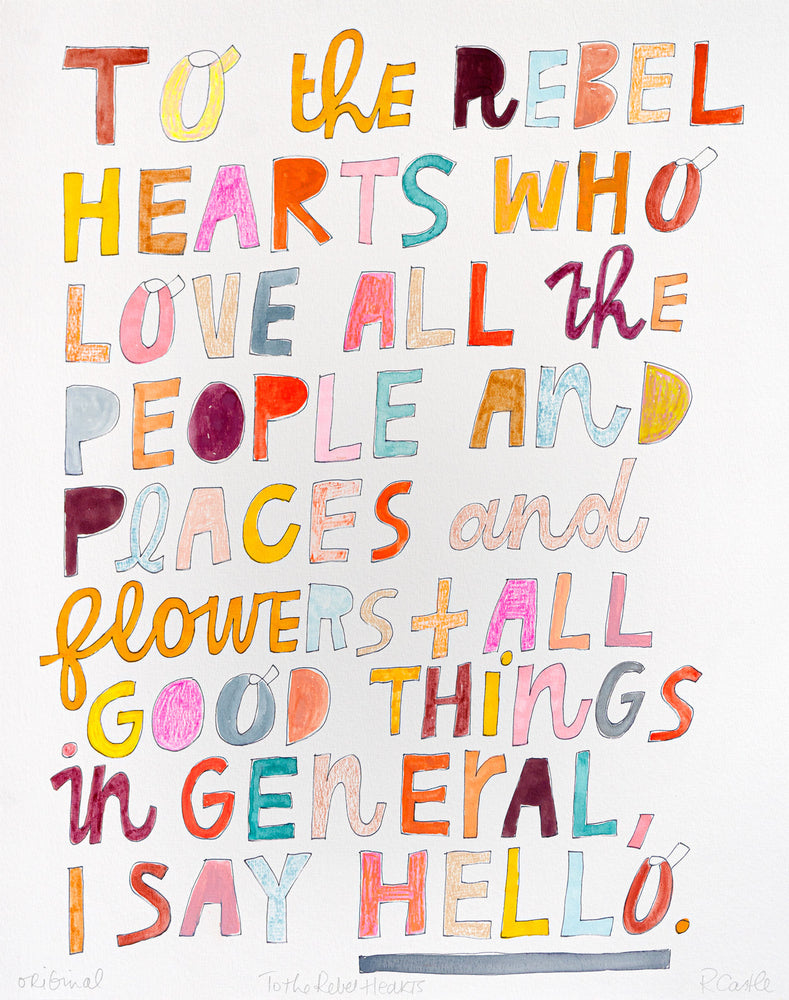 TO the REBEL
HEARTS WHO
LOVE ALL the
PEOPLE AnD
PlACES and
flowERS + ALL
GOOD THiNGS
in GEnErAL,
I SAY HELLO.
original
To the Rebel Hearts
R Castle